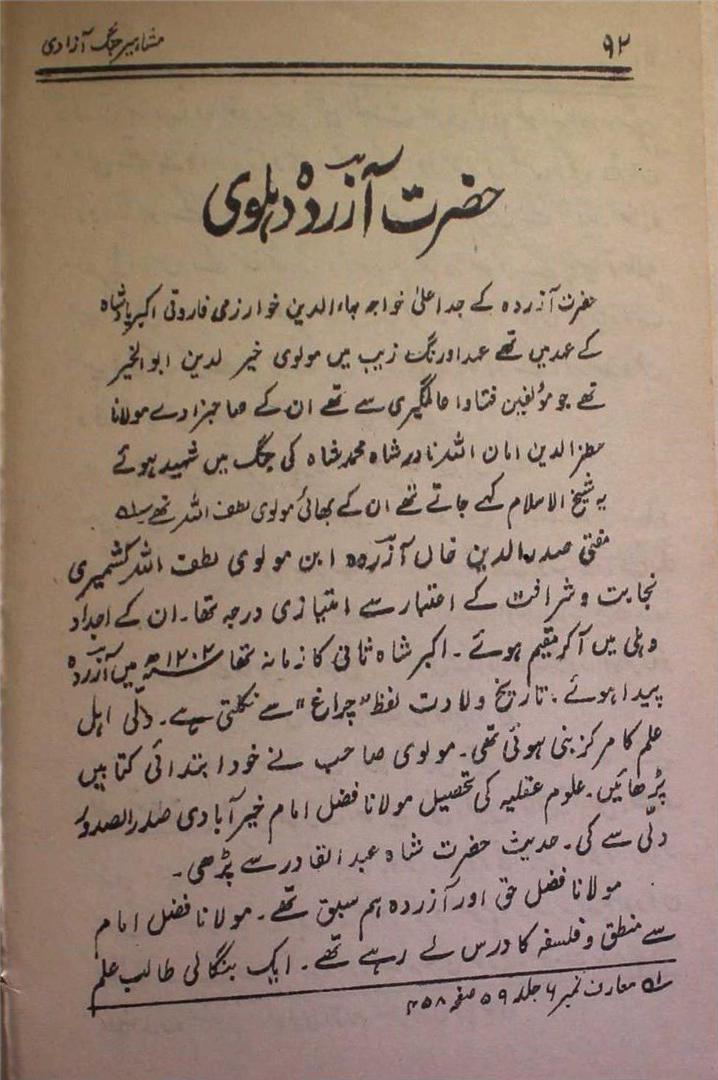 ۹۲ مشاہیر جنگ آزادی
حضرت آزردہ دہلوی
حضرت آزردہ کے جد اعلیٰ خواجہ بہاءالدین خوارزمی فاروقی اکبر بادشاہ
کے عہد میں تھے عہد اورنگ زیب میں مولوی خیر الدین ابوالخیر
تھے جو مؤلفین فتاوا عالمگیری سے تھے ان کے صاحبزادے مولانا
الدین امان اللہ نادر شاہ محمد شاہ کی جنگ میں شہید ہوئے
یہ شیخ الاسلام کہے جاتے تھے ان کے بھائی مولوی لطف اللہ تھے ؎۱
مفتی صدرالدین خاں آزردہ ابن مولوی لطف اللہ کشمیری
نجابت و شرافت کے اعتبار سے امتیازی درجہ تھا۔ ان کے اجداد
دہلی میں آکر مقیم ہوئے۔ اکبر شاہ ثانی کا زمانہ تھا ۱۲۰۲ھ میں آزردہ
پیدا ہوئے۔ تاریخ ولادت لفظ "چراغ" سے نکلتی ہے۔ دلّی اہل
علم کا مرکز بنی ہوئی تھی۔ مولوی صاحب نے خود ابتدائی کتابیں
پڑھائیں۔ علوم عقلیہ کی تحصیل مولانا فضل امام خیرآبادی صدرالصدور
دلّی سے کی۔ حدیث حضرت شاہ عبدالقادر سے پڑھی۔
مولانا فضل حق اور آزردہ ہم سبق تھے۔ مولانا فضل امام
سے منطق و فلسفہ کا درس لے رہے تھے۔ ایک بنگالی طالب علم
؎۱ معارف نمبر ۶ جلد ۵۹ صفحہ ۴۵۸